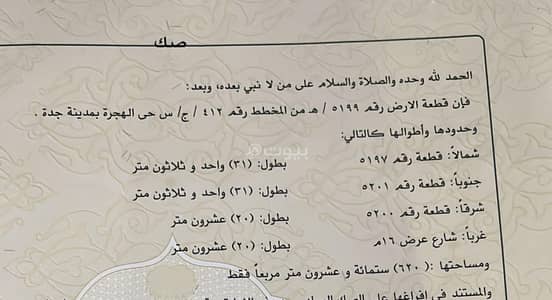 صك
الحمد لله وحده والصلاة والسلام على من لا نبي بعده، وبعد:
فإن قطعة الارض رقم ٥١٩٩ / هـ من المخطط رقم ٤١٢ / ج/ س حى الهجرة بمدينة جدة .
وحدودها وأطوالها كالتالي:
شمالاً: قطعة رقم ٥١٩٧ بطول: (٣١) واحد و ثلاثون متر
جنوباً: قطعة رقم ٥٢٠١ بطول: (٣١) واحد و ثلاثون متر
شرقاً: قطعة رقم ٥٢٠٠ بطول: (٢٠) عشرون متر
غرباً: شارع عرض ١٦م بطول: (٢٠) عشرون متر
ومساحتها :(٦٢٠) ستمائة و عشرون متر مربعاً فقط
والمستند في افراغها على الصك
بيوت